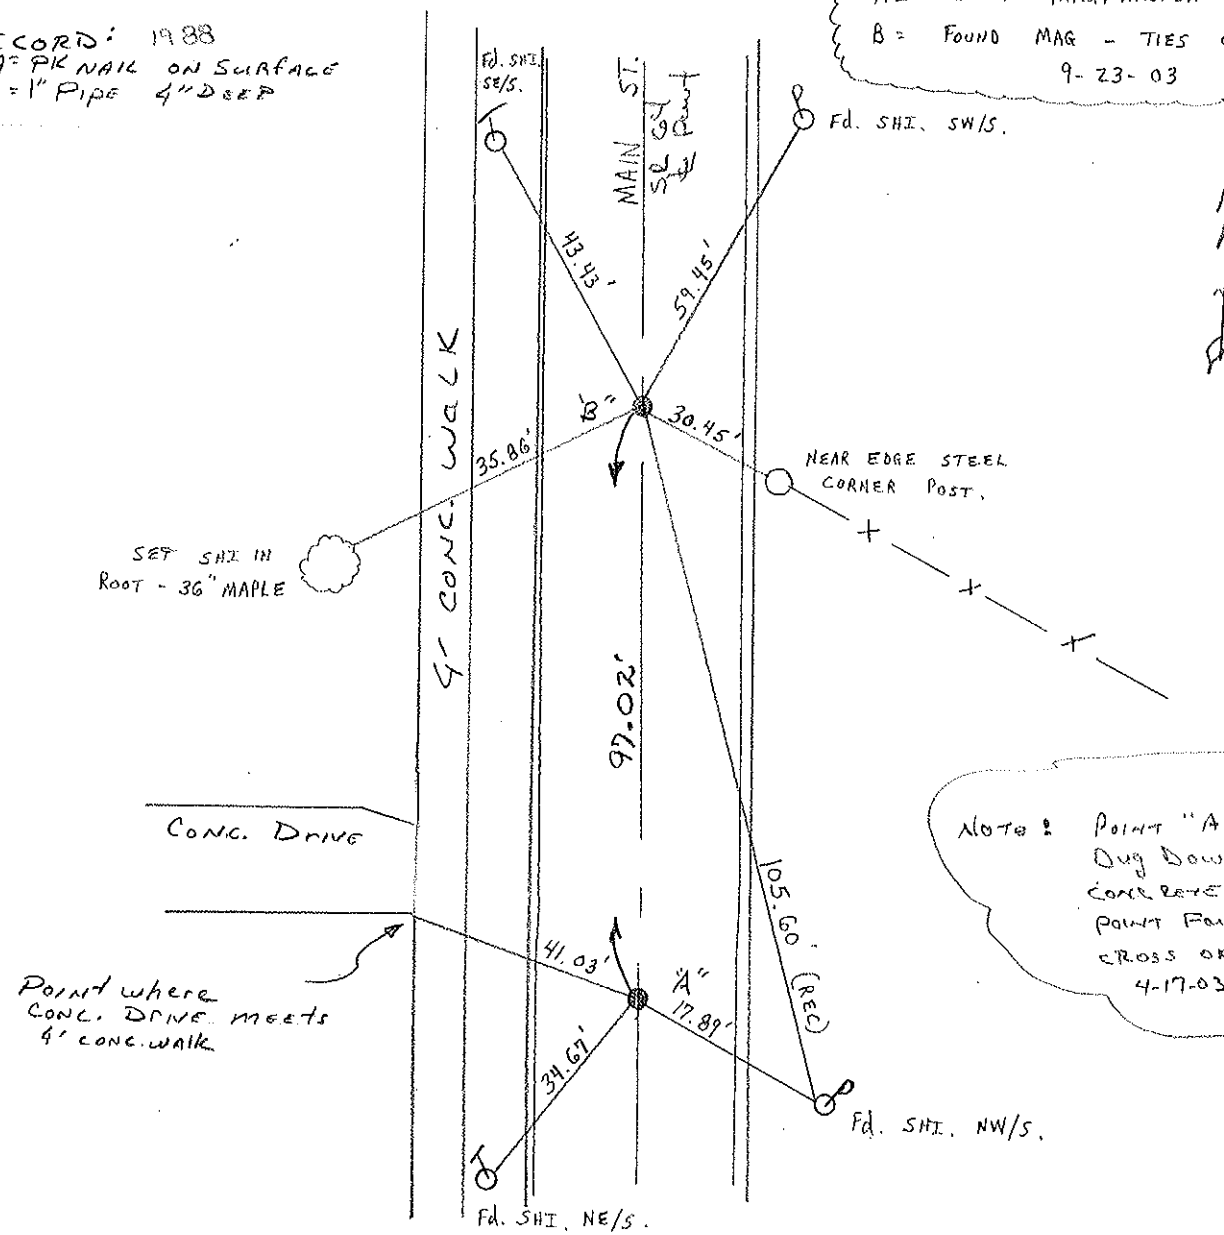 CORD: 1988
= PK NAIL ON SURFACE
= 1" PIPE 4" DEEP
B = FOUND MAG - TIES
9-23-03
Fd. SHI.
SE/S.
MAIN ST.
Fd. SHI. SW/S.
43.43'
59.45'
4' CONC. WALK
"B"
30.45'
35.86'
NEAR EDGE STEEL
CORNER POST.
SET SHI IN
ROOT - 36" MAPLE
97.02'
CONC. DRIVE
NOTE: POINT "A
Dug Dow
CONCRETE
POINT Fou
CROSS ON
4-17-03
105.60' (REC)
41.03'
"A"
17.89'
Point where
CONC. DRIVE MEETS
4' CONC. WALK
34.67'
Fd. SHI. NW/S.
Fd. SHI. NE/S.